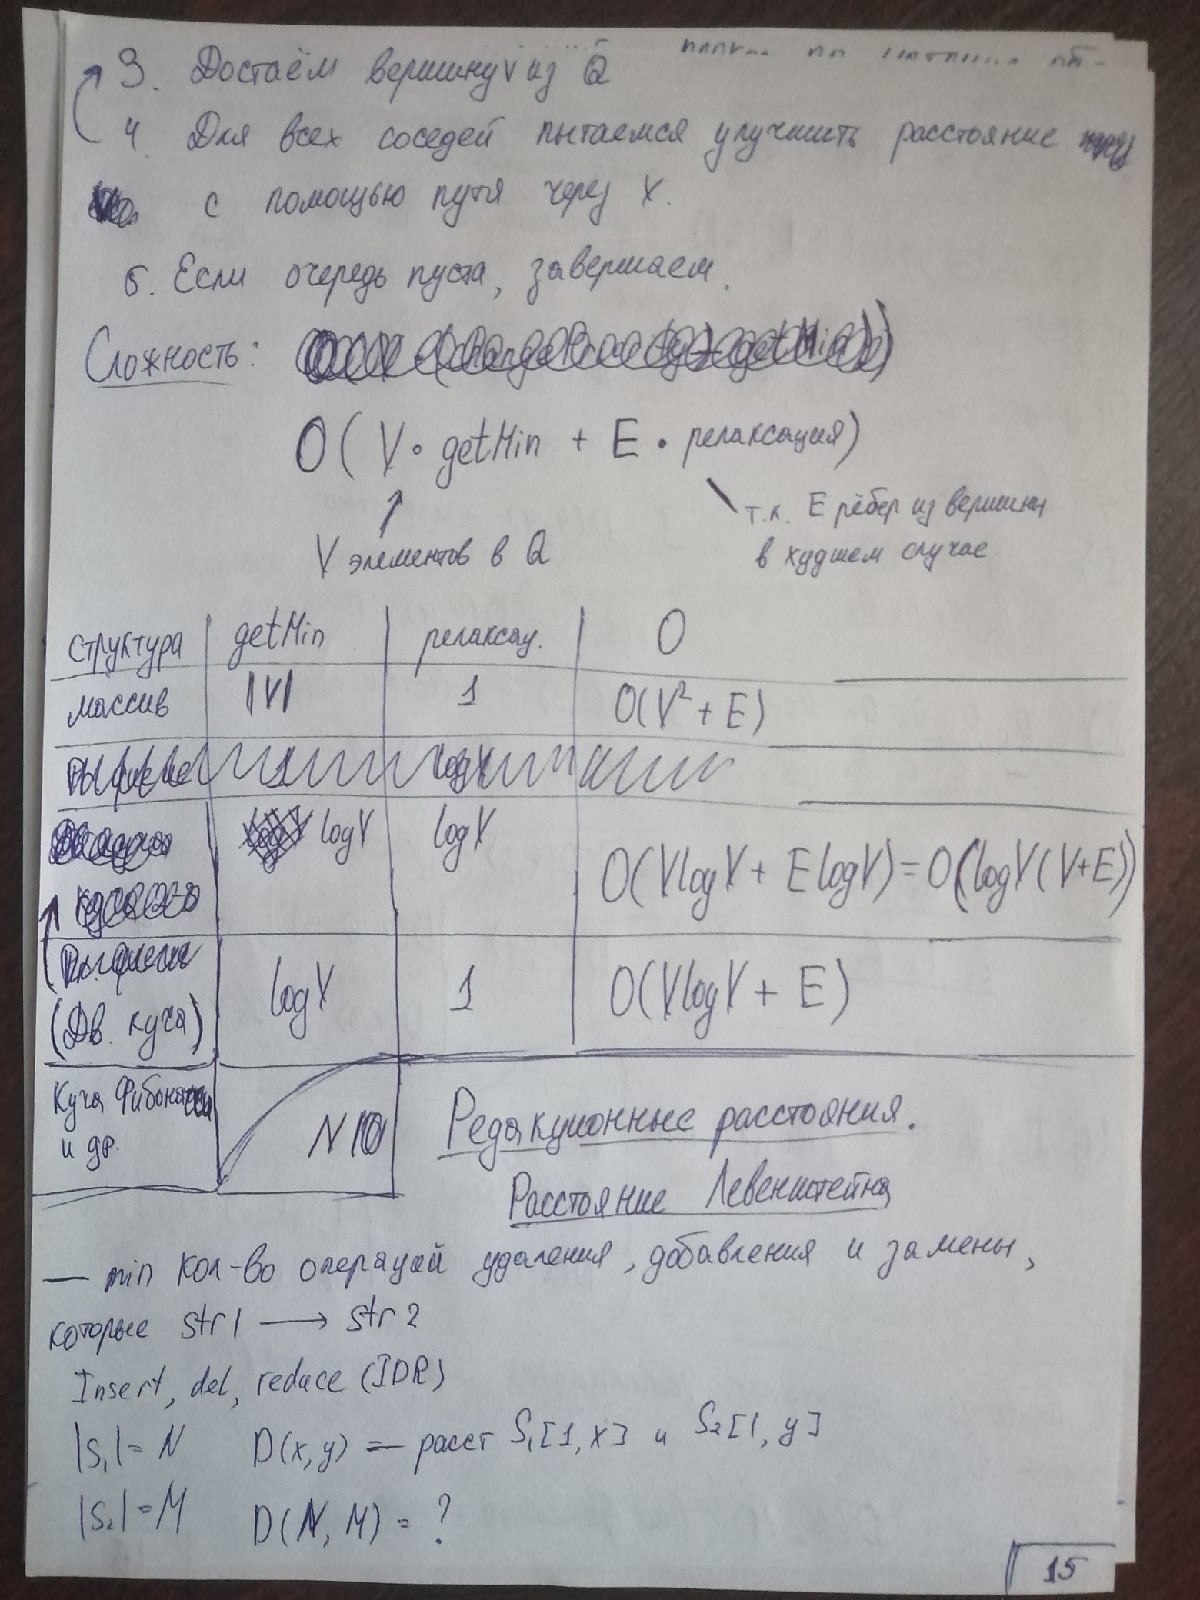 3. Достаём вершину v из Q
4. Для всех соседей пытаемся улучшить расстояние
с помощью пути через X.
5. Если очередь пуста, завершаем.
Сложность:
O( V · getMin + E · релаксация)
V элементов в Q
т.к. E рёбер из вершины
в худшем случае
структура getMin релаксац. O
массив |V| 1 O(V² + E)
logV logV O(VlogV + ElogV) = O(logV(V+E))
(Дв. куча) logV 1 O(VlogV + E)
Куча Фибоначчи
и др.
Редакционные расстояния.
Расстояние Левенштейна
— min кол-во операций удаления, добавления и замены,
которые str1 ⟶ str2
Insert, del, reduce (IDR)
|S₁| = N D(x,y) — расст S₁[1,x] и S₂[1,y]
|S₂| = M D(N, M) = ?
15